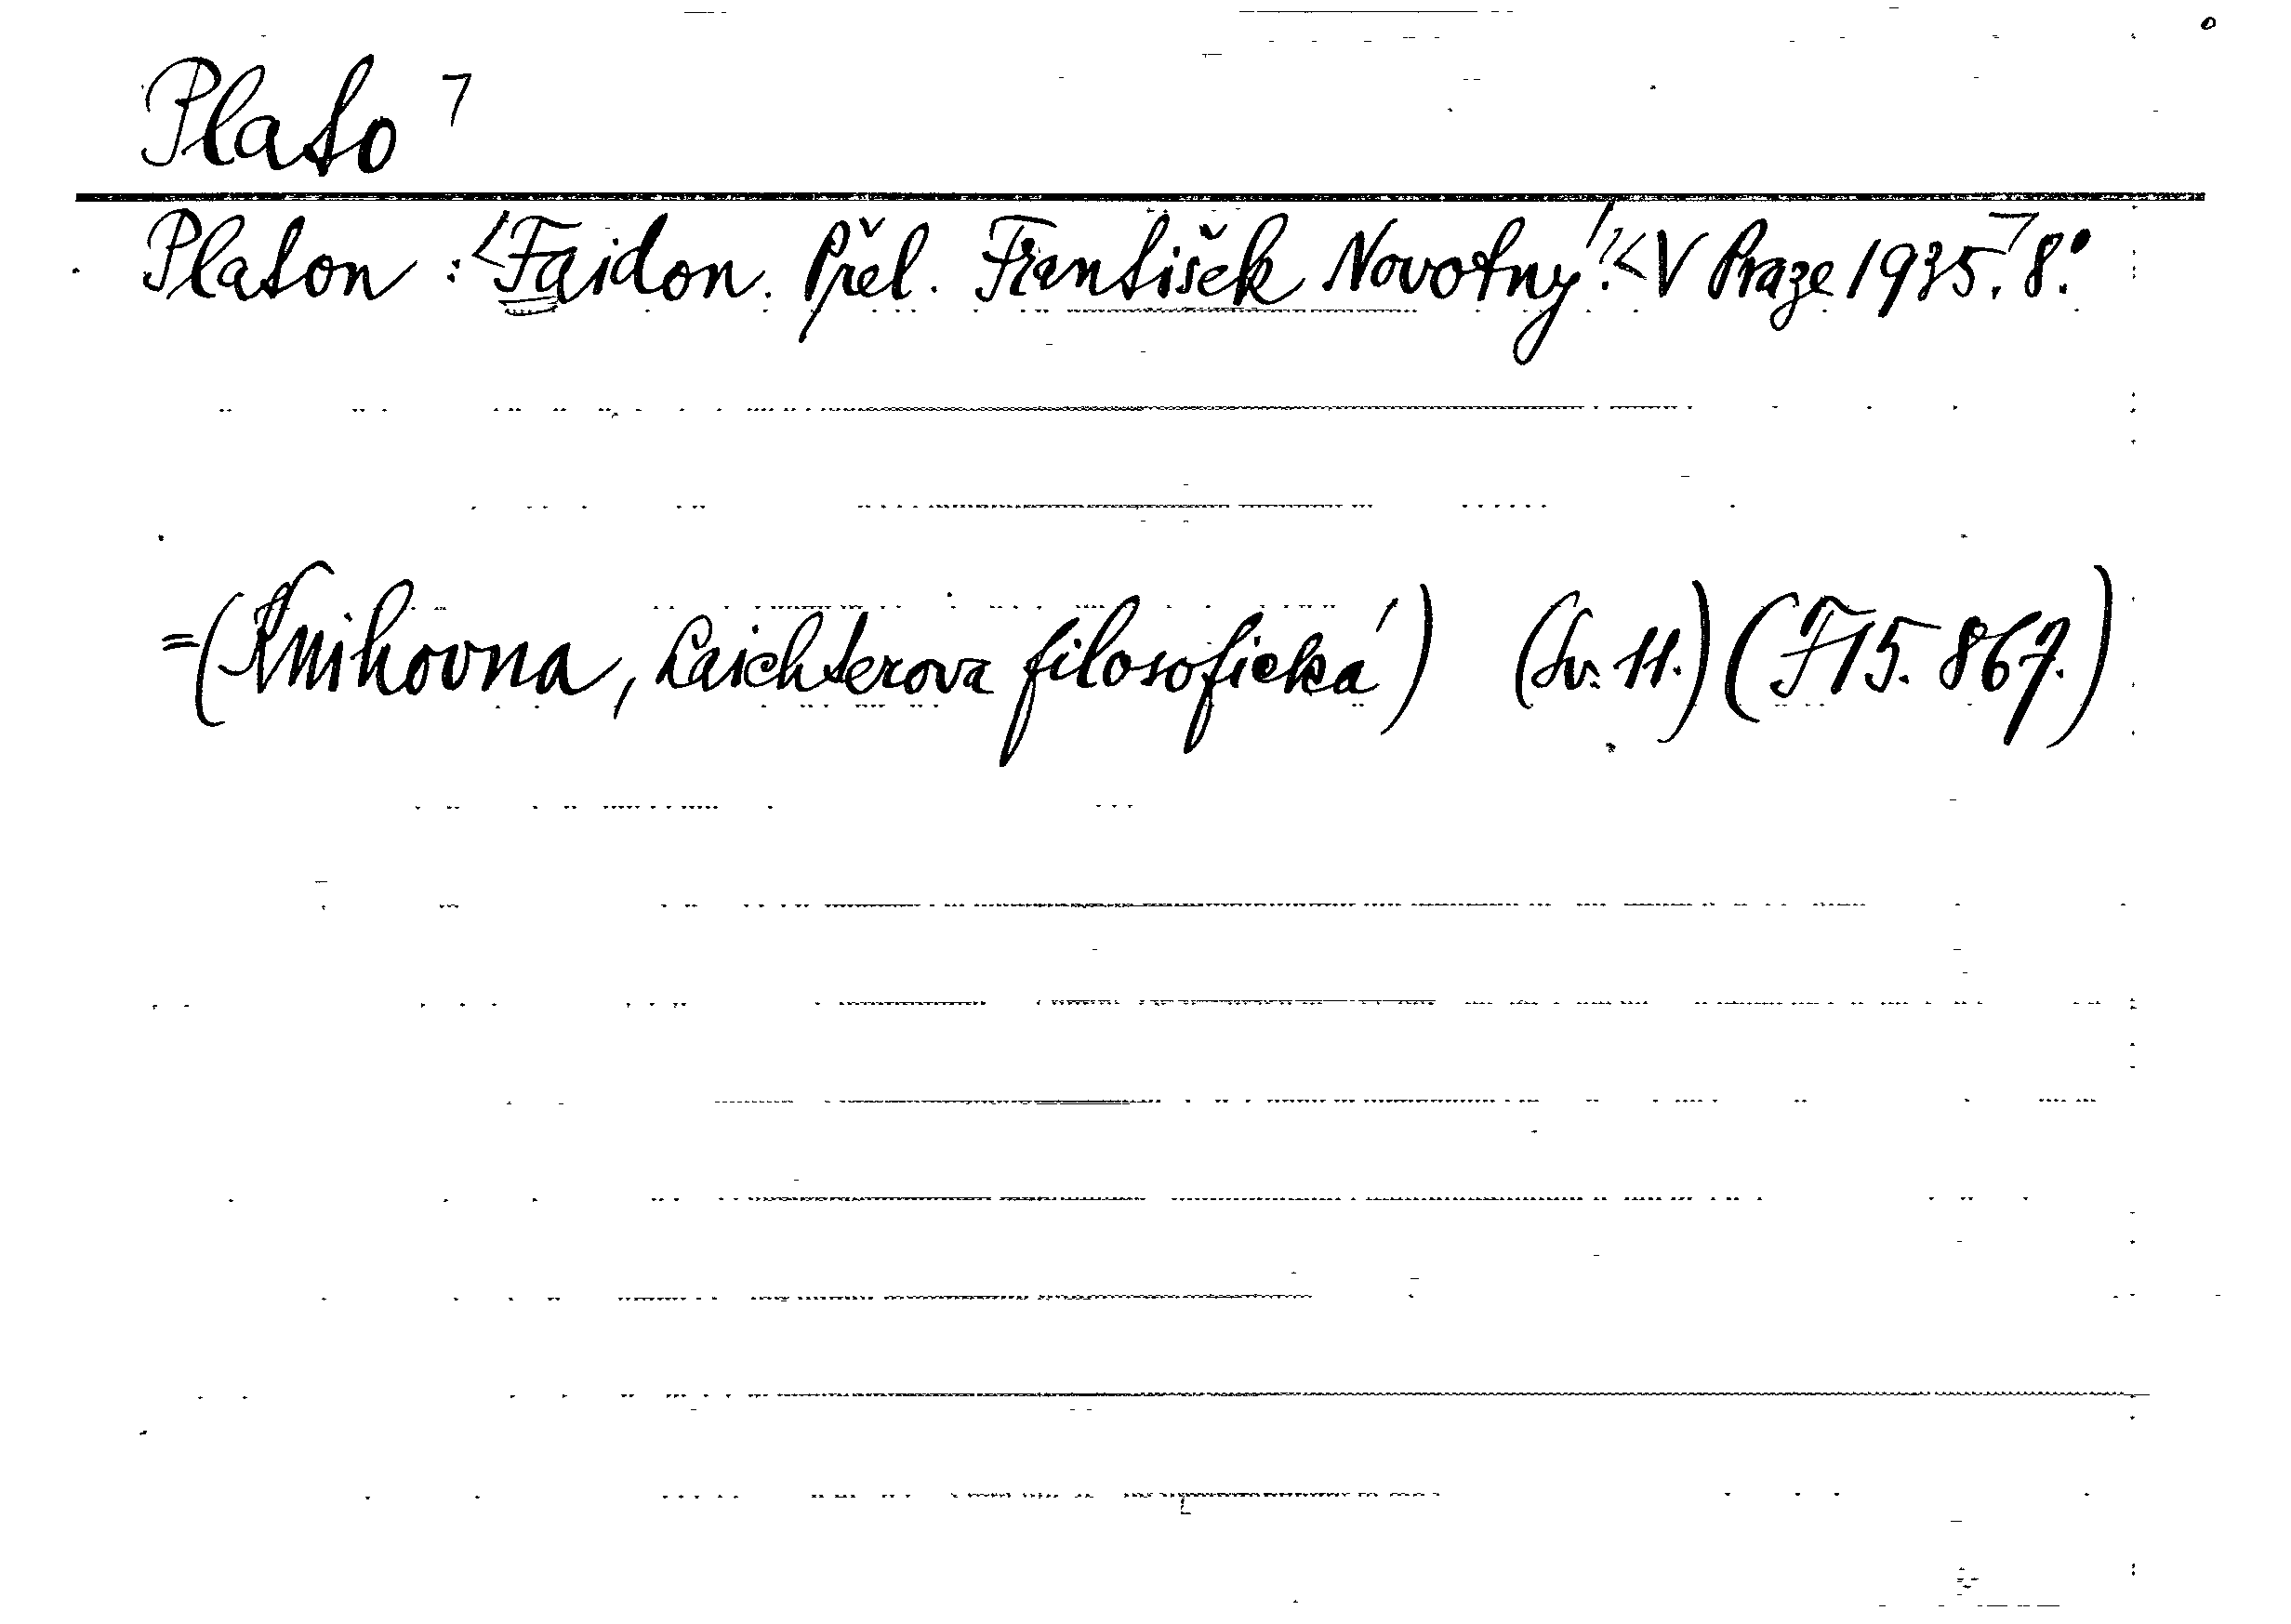 Plato ⁊
Platon: <Faidon. Přel. František Novotný.< V Praze 1935. 8°.
=(Knihovna, Laichterova filosofická) (Sv. 11.) (F 15. 867.)